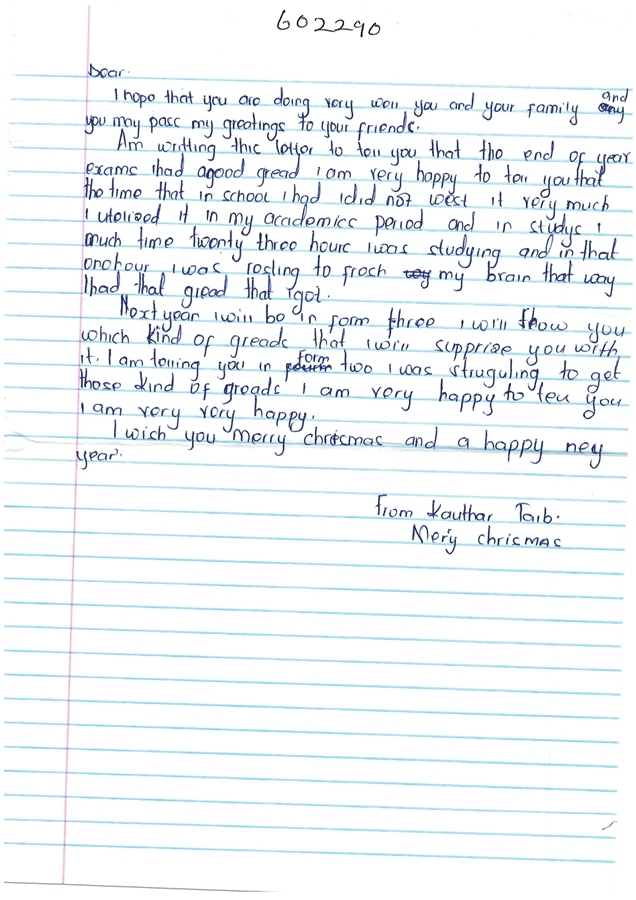 602290
Dear.
I hope that you are doing very well you and your family and
you may pass my greatings to your friends.
Am writting this letter to tell you that the end of year
exams ihad agood gread i am very happy to tell you that
the time that in school i had idid not west it very much
i utolised it in my accademics period and in studys i
much time twenty three hours iwas studying and in that
onehour iwas resting to fresh my brain that way
ihad that gread that igot.
Next year iwill be in form three iwill show you
which kind of greads that iwill supprize you with
it. I am telling you in form two iwas struguling to get
those kind of greads i am very happy to tell you
i am very very happy.
I wish you merry chrismas and a happy ney
year.
From Kauthar Taib.
Mery chrismas